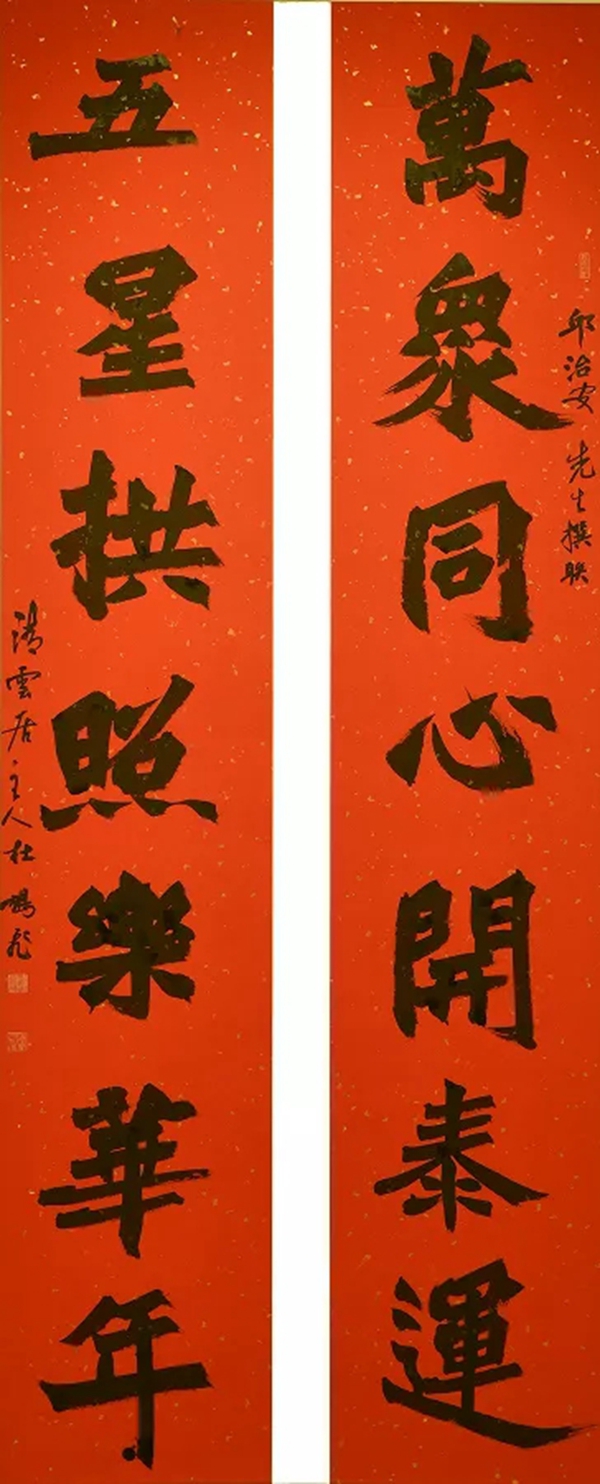 萬衆同心開泰運
邱治安先生撰联
五星拱照樂華年
雲居主人杜鵬飛